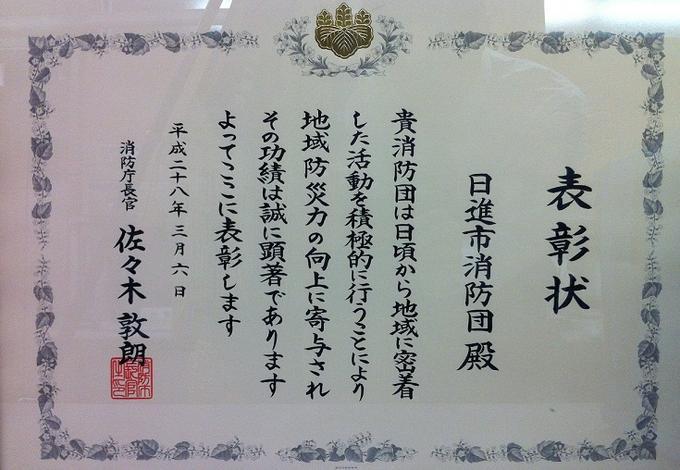 表彰状
日進市消防団 殿
貴消防団は日頃から地域に密着
した活動を積極的に行うことにより
地域防災力の向上に寄与され
その功績は誠に顕著であります
よってここに表彰します
平成二十八年三月六日
消防庁長官 佐々木敦朗